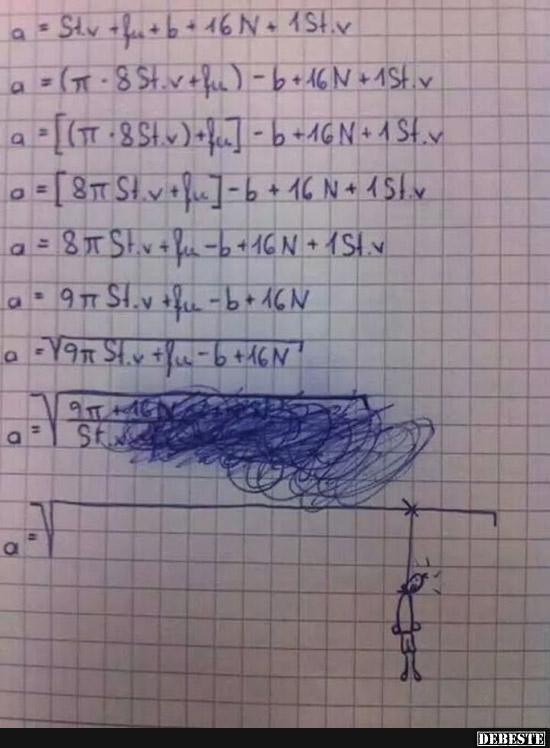 a = St.v + fu + b + 16 N + 1St.v
a = (π · 8 St.v + fu) - b + 16 N + 1St.v
a = [(π · 8 St.v) + fu] - b + 16 N + 1 St.v
a = [8π St.v + fu] - b + 16 N + 1 St.v
a = 8 π St.v + fu - b + 16 N + 1 St.v
a = 9π St.v + fu - b + 16N
a = √9π St.v + fu - b + 16N
9π + 16N
a = √ St.
a = √
DEBESTE